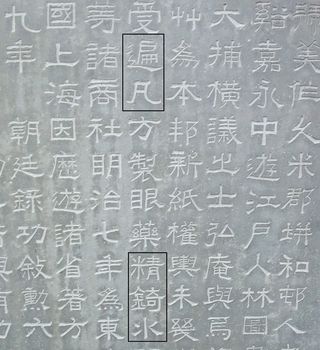 美作久米郡垪和邨人
谿嘉永中遊江戶入林圖
大捕橫議之士弘庵與焉
艸為本邦新紙權輿未幾
受遍凡方製眼藥精錡水
等諸商社明治七年為東
國上海因歷遊諸省著方
九年 朝廷錄功敘勳六